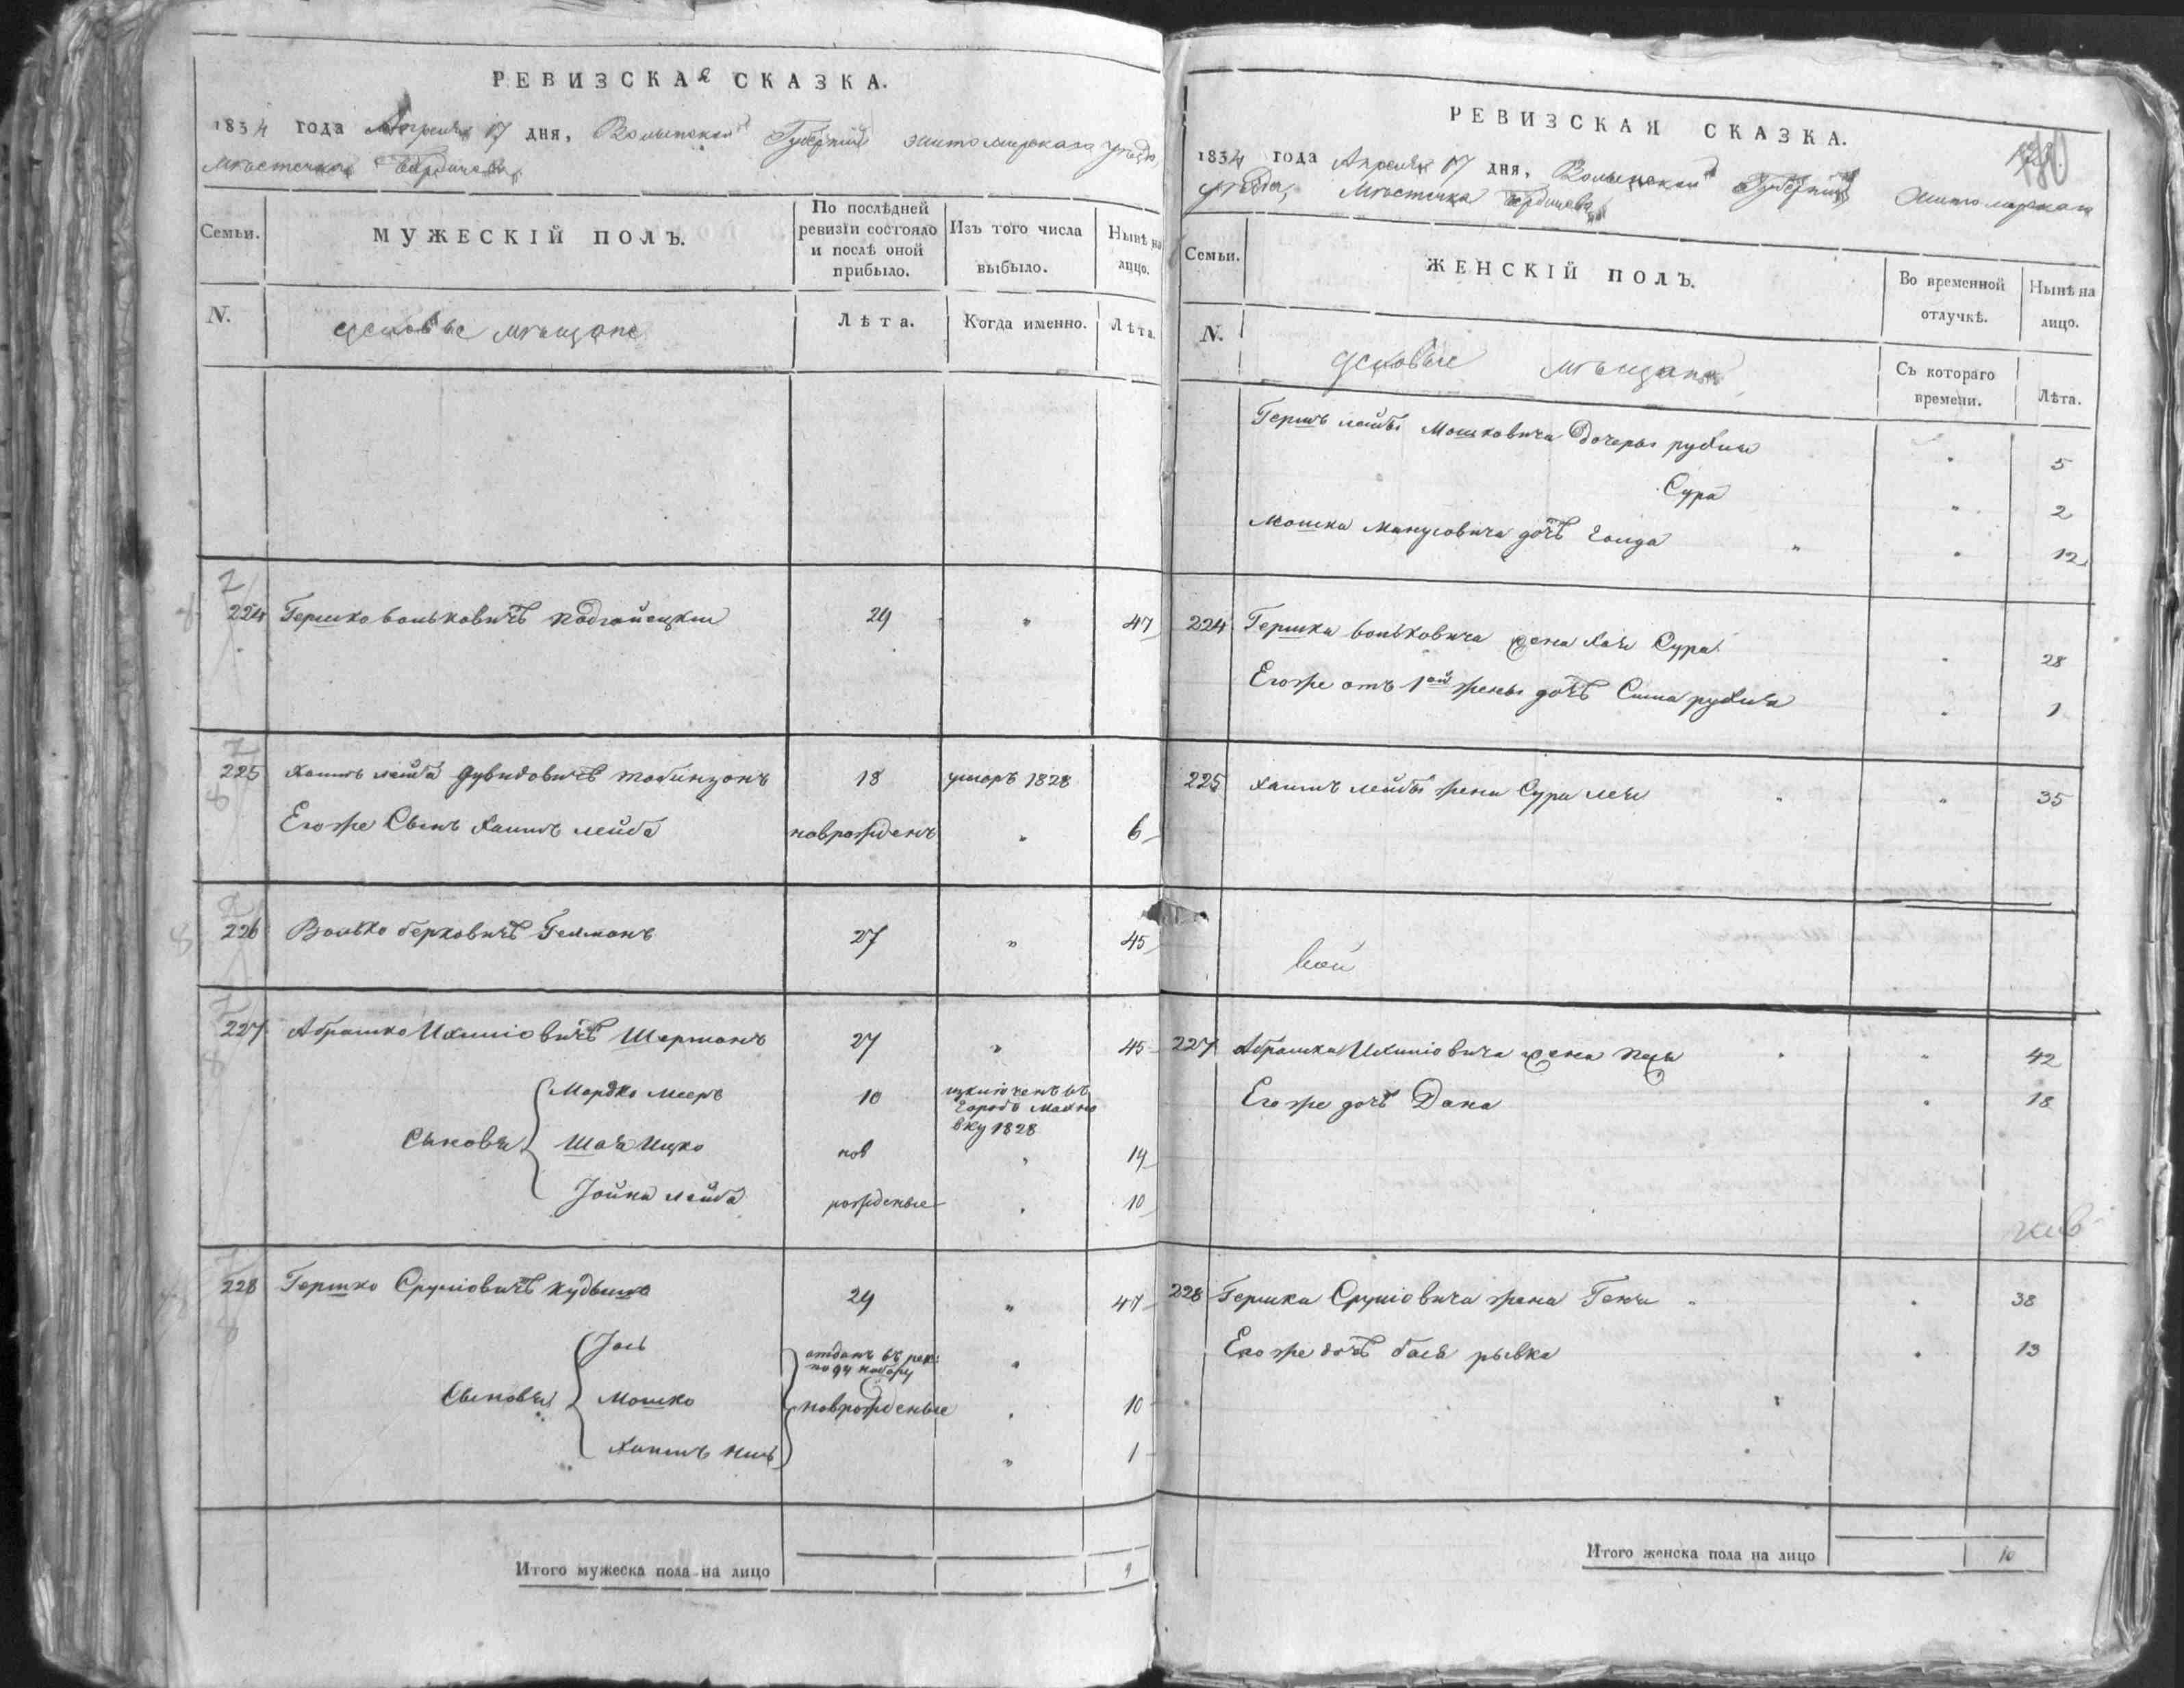 РЕВИЗСКАЯ СКАЗКА.
1834 года Апреля 17 дня, Волынской Губерніи Житомирскаго уезда,
Мѣстечка Бердичева
Семьи.
МУЖЕСКІЙ ПОЛЪ.
По послѣдней
ревизіи состояло
и послѣ оной
прибыло.
Изъ того числа
выбыло.
Нынѣ на
лицо.
N.
мѣщане
Лѣта.
Когда именно.
Лѣта.
224 Гершко Волковичъ Подгайецкій 29 " 47
225 Хаимъ Лейба Дувидовичъ Товинзонъ 18 умеръ 1828
Егоже Сынъ Хаимъ Лейба новрожденъ " 6
226 Волько Берковичъ Гелманъ 27 " 45
227 Абрамко Ихиліовичъ Шерманъ 27 " 45
Мордко Мееръ 10 изключенъ въ
городъ Махно
вку 1828
Сыновья Шая Ицко нов 14
Іойна Лейба рожденые 10
228 Гершко Сруліовичъ Кудышъ 29 " 47
Іось отданъ въ рек:
по 94 набору
Сыновья Мошко новрожденые 10
Хаимъ " 1
Итого мужеска пола на лицо 9
РЕВИЗСКАЯ СКАЗКА.
1834 года Апреля 17 дня, Волынской Губерніи Житомирскаго
уезда, Мѣстечка Бердичева
Семьи.
ЖЕНСКІЙ ПОЛЪ.
Во временной
отлучкѣ.
Нынѣ на
лицо.
N.
мѣщане
Съ котораго
времени.
Лѣта.
Гершъ Лейбы Мошковича дочеры Рухля 5
Сура 2
Мошка Манусовича дочь Голда " 12
224 Гершка Вольковича жена Хая Сура 28
Егоже отъ 1ой жены дочь Сима Рухля 1
225 Хаимъ Лейбы жена Сура Лея " " 35
227 Абрамка Ихиліовича жена Песя " 42
Егоже дочь Дана 18
228 Гершка Сруліовича жена Геня " 38
Егоже дочь Бася Рывка 13
Итого женска пола на лицо 10